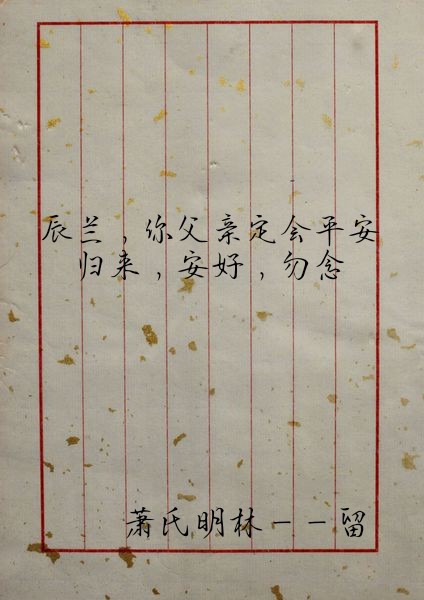 辰兰，你父亲定会平安
归来，安好，勿念
萧氏明林－－留